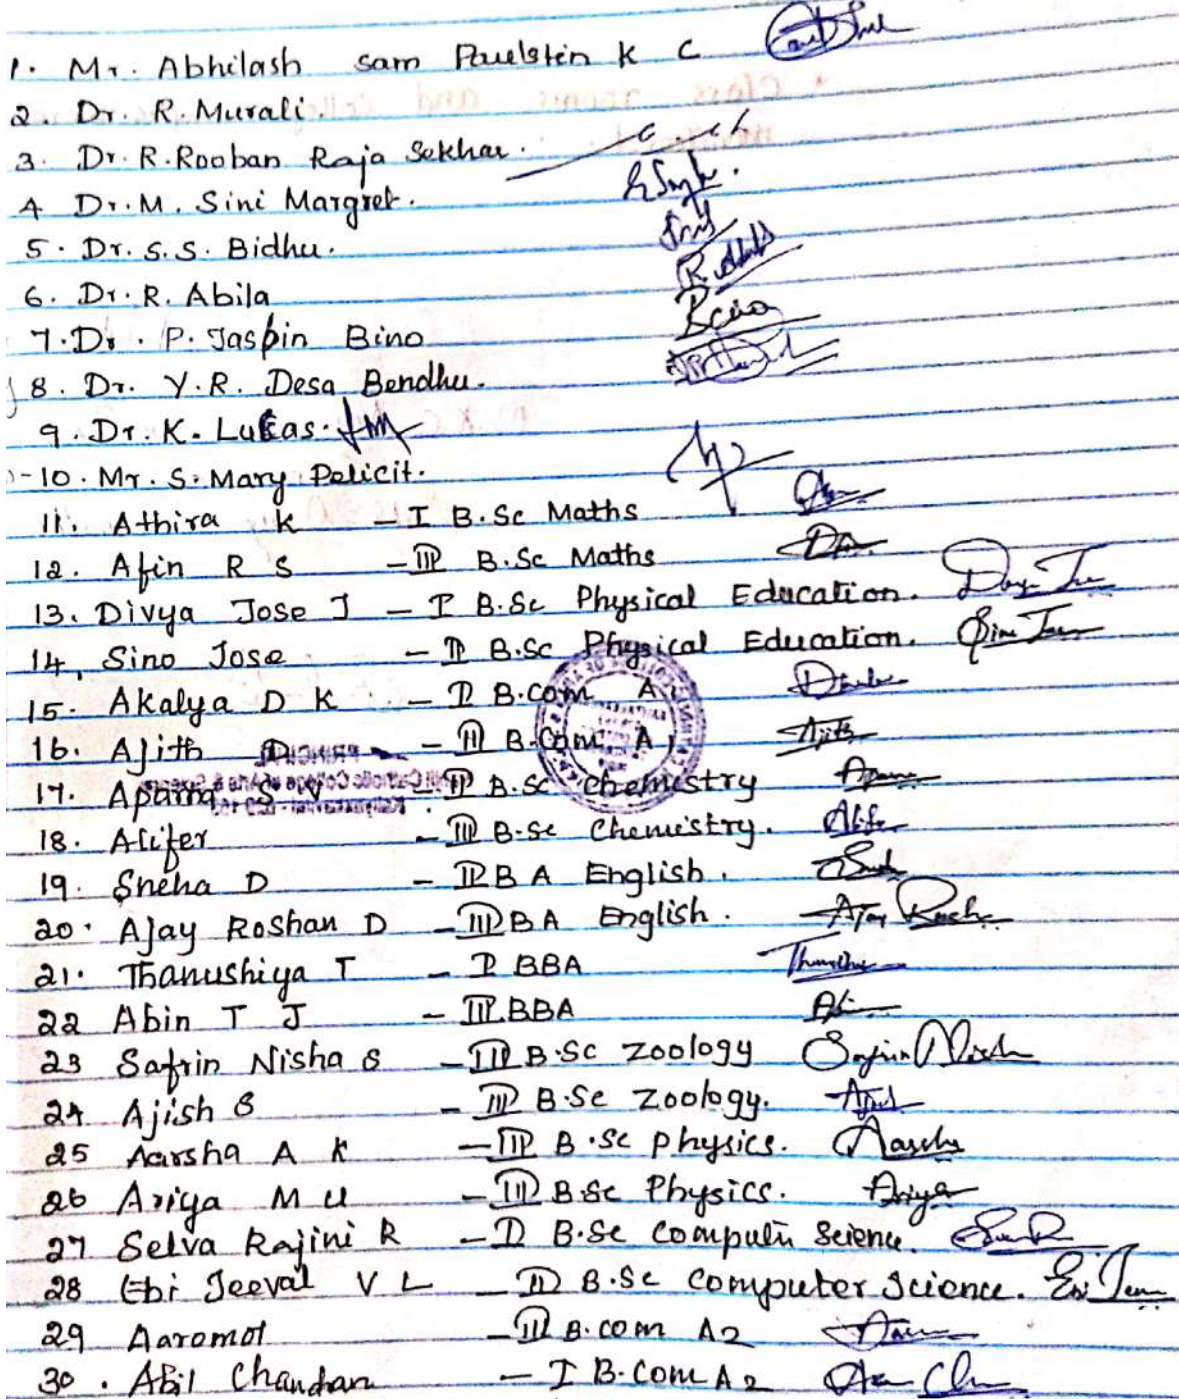 1. Mr. Abhilash sam Paulstin K C
2. Dr. R. Murali.
3. Dr. R. Rooban Raja Sekhar.
4 Dr. M. Sini Margret.
5. Dr. S.S. Bidhu.
6. Dr. R. Abila
7. Dr. P. Jaspin Bino
8. Dr. Y.R. Desa Bendhu.
9. Dr. K. Lukas.
10. Mr. S. Mary Pelicit.
11. Athira K - I B.Sc Maths
12. Afin R S - III B.Sc Maths
13. Divya Jose J - I B.Sc Physical Education.
14. Sino Jose - II B.Sc Physical Education.
15. Akalya D K - II B.Com A1
16. Ajith D - III B.Com A1 Ajith
17. Aparna S V - II B.Sc Chemistry
18. Alifer - III B.Sc Chemistry.
19. Sneha D - II B A English.
20. Ajay Roshan D - III B A English. Ajay
21. Thanushiya T - I BBA
22 Abin T J - III BBA
23 Safrin Nisha S - III B.Sc Zoology Safrin
24 Ajish S - III B.Sc Zoology.
25 Aarsha A K - III B.Sc physics.
26 Ariya M U - III B.Sc Physics. Ariya
27 Selva Rajini R - II B.Sc Computer Science.
28 Ebi Jeeval V L - III B.Sc Computer Science.
29 Aaromol - III B.com A2
30. Abil Chandran - I B.Com A2